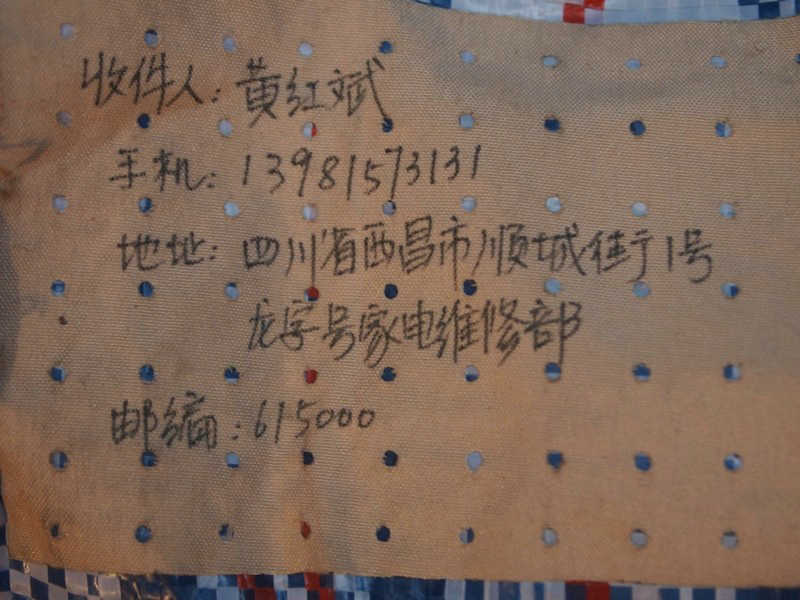 收件人：黄红斌
手机：13981573131
地址：四川省西昌市顺城街1号
龙字号家电维修部
邮编：615000